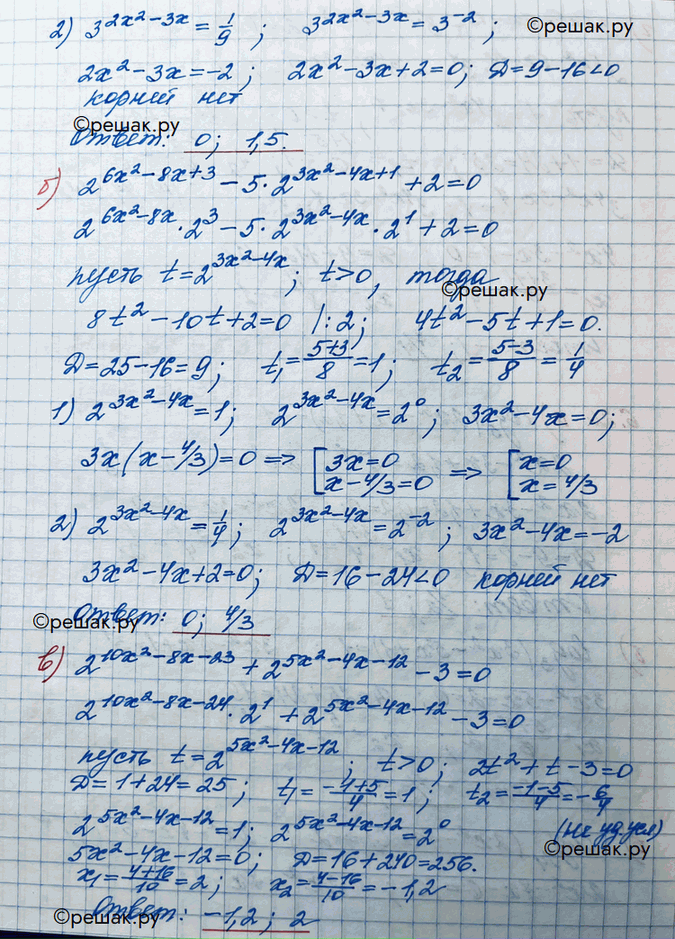 2) 3^(2x²-3x) = 1/9 ; 3^(2x²-3x) = 3^(-2) ; ©решак.ру
2x²-3x=-2; 2x²-3x+2=0; D=9-16<0
корней нет
©решак.ру
Ответ: 0; 1,5.
б) 2^(6x²-8x+3) - 5·2^(3x²-4x+1) + 2=0
2^(6x²-8x)·2³ - 5·2^(3x²-4x)·2¹ + 2=0
пусть t=2^(3x²-4x); t>0, тогда
©решак.ру
8t²-10t+2=0 /:2; 4t²-5t+1=0.
D=25-16=9; t₁=(5+3)/8=1; t₂=(5-3)/8=1/4
1) 2^(3x²-4x)=1; 2^(3x²-4x)=2⁰; 3x²-4x=0;
3x(x-4/3)=0 => [3x=0 => [x=0
x-4/3=0 x=4/3
2) 2^(3x²-4x)=1/4; 2^(3x²-4x)=2^(-2); 3x²-4x=-2
3x²-4x+2=0; D=16-24<0 корней нет
©решак.ру
Ответ: 0; 4/3
в) 2^(10x²-8x-23) + 2^(5x²-4x-12) - 3=0
2^(10x²-8x-24)·2¹ + 2^(5x²-4x-12) - 3=0
пусть t=2^(5x²-4x-12); t>0; 2t²+t-3=0
D=1+24=25; t₁=(-1+5)/4=1; t₂=(-1-5)/4=-6/4
2^(5x²-4x-12)=1; 2^(5x²-4x-12)=2⁰ (не уд.усл)
5x²-4x-12=0; D=16+240=256. ©решак.ру
x₁=(4+16)/10=2; x₂=(4-16)/10=-1,2
©решак.ру
Ответ: -1,2; 2